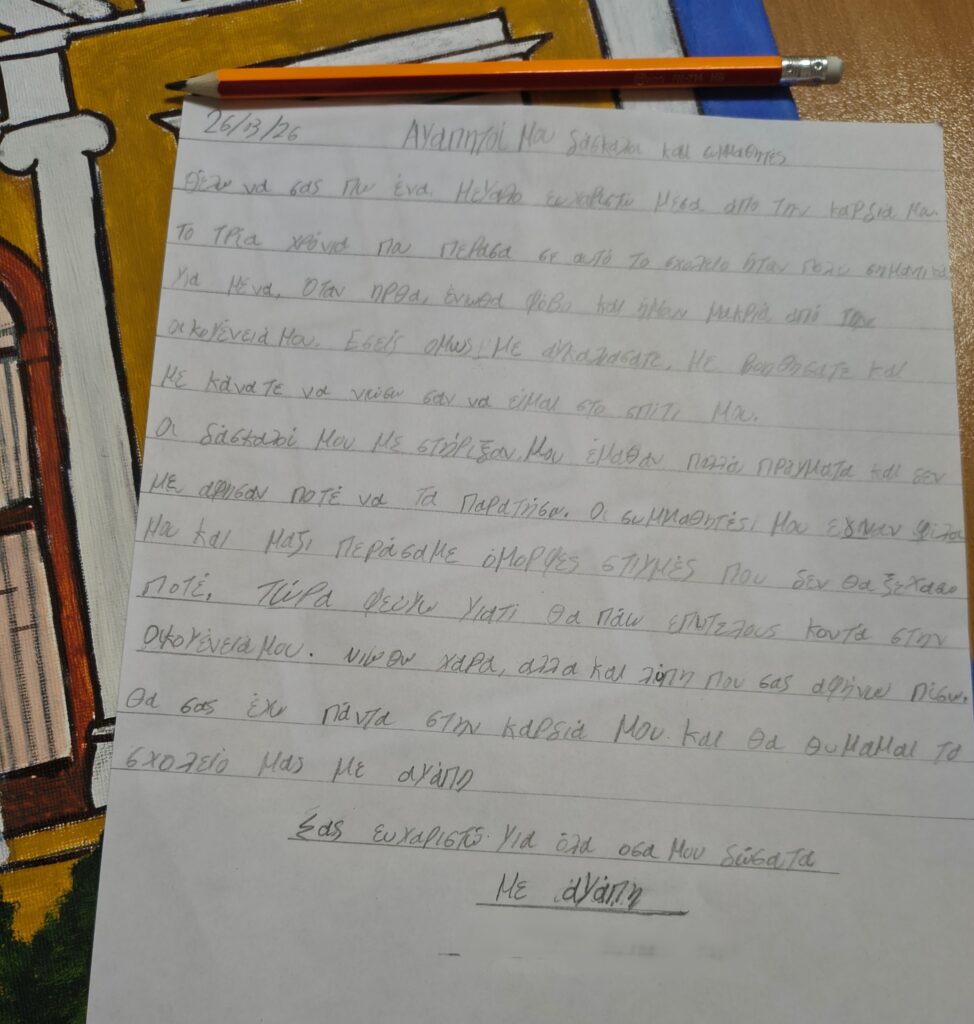 26/03/26 Αγαπητοί μου δάσκαλοι και συμμαθητές
Θέλω να σας πω ένα μεγάλο ευχαριστώ μέσα από την καρδιά μου.
Το τρία χρόνια που περασα σε αυτό το σχολείο ήταν πολυ σημαντικα
για μένα, Όταν ηρθα, ένωθα φόβο και ήμουν μακριά από την
οικογένειά μου. Εσείς ομως με αγκαλιάσατε, με βοηθησατε και
με κάνατε να νιώσω σαν να είμαι στο σπίτι μου.
Οι δάσκαλοί μου με στήριξαν, μου έμαθαν πολλά πράγματα και δεν
με αφησαν ποτέ να τα παρατήσω. Οι συμμαθητές μου εγιναν φίλοι
μου και μαζι περάσαμε όμορφες στιγμές που δεν θα ξεχασω
ποτέ. Τώρα φεύγω γιατι θα πάω επιτελους κοντα στην
οικογένειά μου. νιωθω χαρα, αλλα και λύπη που σας αφήνω πίσω.
Θα σας έχω πάντα στην καρδιά μου. και θα θυμαμαι το
σχολείο μας με αγάπη
Σας ευχαριστώ για όλα οσα μου δώσατα
Με αγάπη